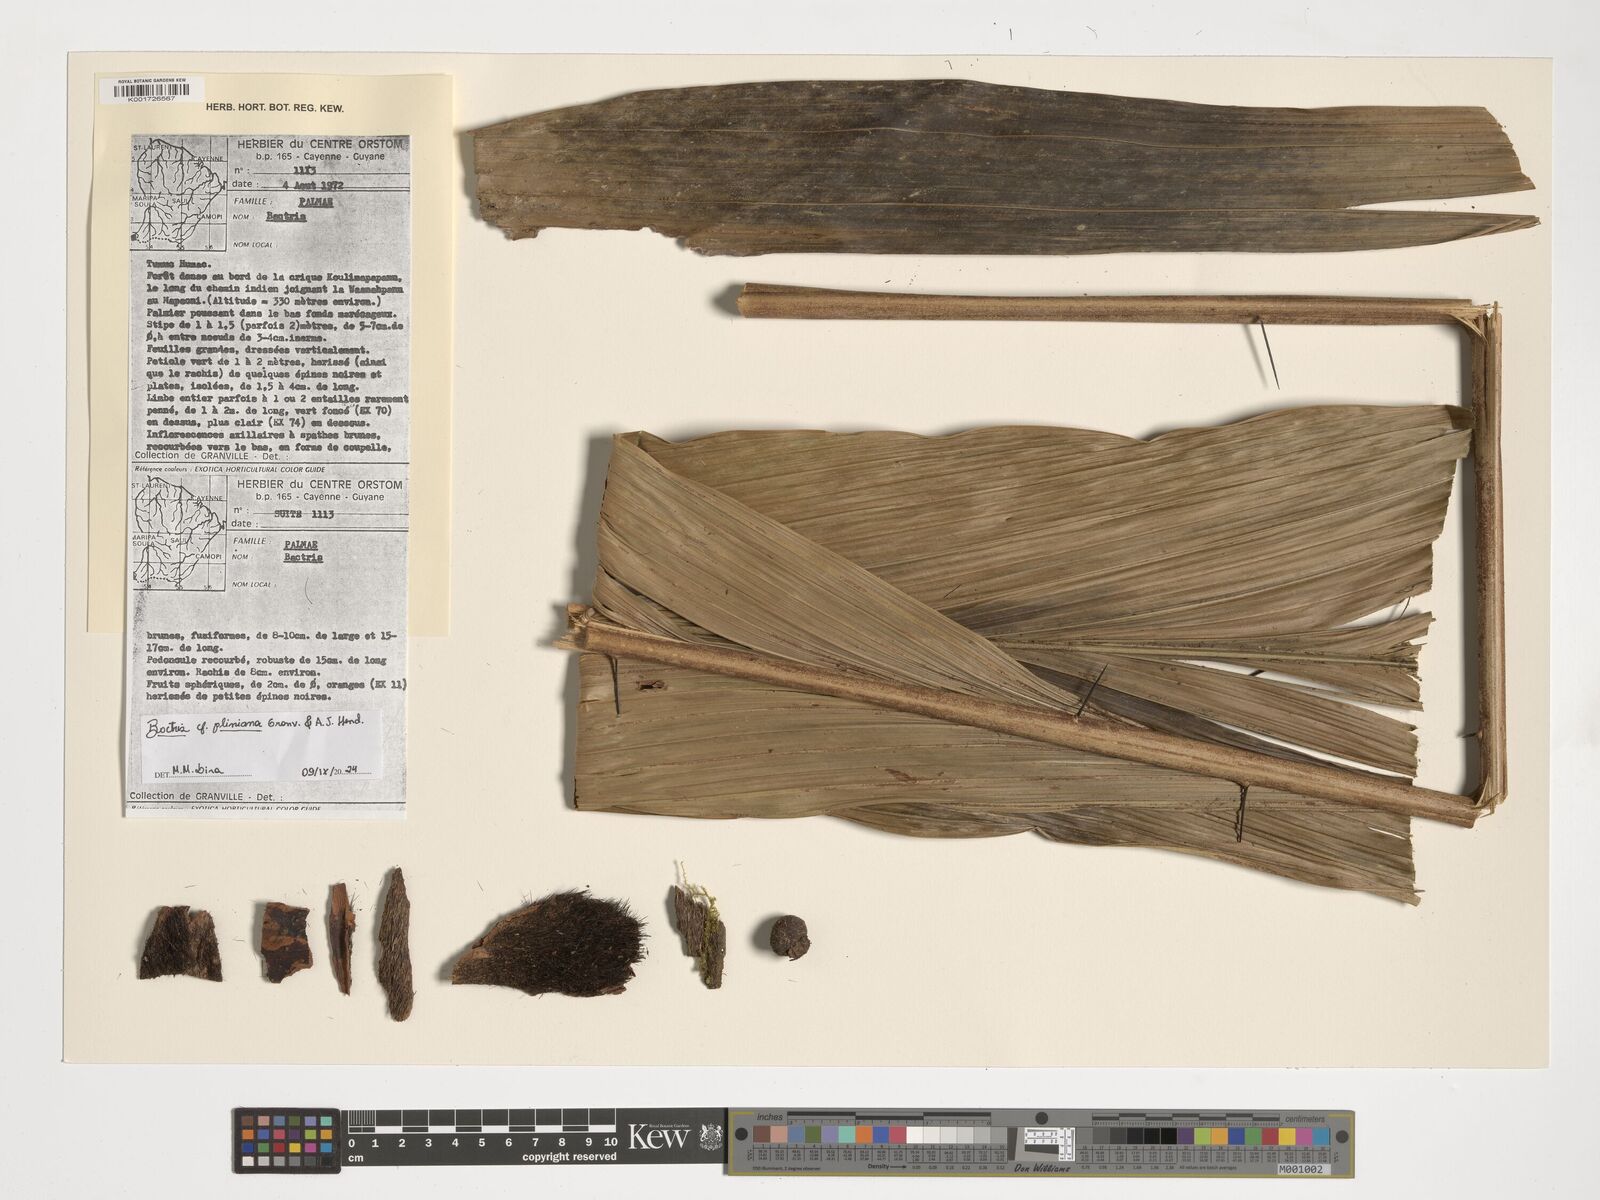 ROYAL BOTANIC GARDENS KEW
K001726567
HERB. HORT. BOT. REG. KEW.
ST-LAURENT
CAYENNE
MARIPA SOULA
SAUL
CAMOPI
HERBIER du CENTRE ORSTOM
b.p. 165 - Cayenne - Guyane
n° : 1113
date : 4 Aout 1972
FAMILLE : PALMAE
NOM : Bactris
NOM LOCAL :
Tumuc Humac.
Forêt dense au bord de la crique Koulimapopann,
le long du chemin indien joignant la
au Mapaoni.(Altitude = 330 mètres environ.)
Palmier poussant dans le bas fonds marécageux.
Stipe de 1 à 1,5 (parfois 2)mètres, de 5-7cm.de
Ø,h entre noeuds de 3-4cm.inerme.
Feuilles grandes, dressées verticalement.
Petiole vert de 1 à 2 mètres, herissé (ainsi
que le rachis) de quelques épines noires et
plates, isolées, de 1,5 à 4cm. de long.
Limbe entier parfois à 1 ou 2 entailles rarement
penné, de 1 à 2m. de long, vert foncé (EX 70)
en dessus, plus clair (EX 74) en dessous.
Inflorescences axillaires à spathes brunes,
recourbées vers le bas, en forme de coupelle,
Collection de GRANVILLE - Det. :
Référence couleurs : EXOTICA HORTICULTURAL COLOR GUIDE
ST-LAURENT
CAYENNE
MARIPA SOULA
SAUL
CAMOPI
HERBIER du CENTRE ORSTOM
b.p. 165 - Cayenne - Guyane
n° : SUITE 1113
date :
FAMILLE : PALMAE
NOM : Bactris
NOM LOCAL :
brunes, fusiformes, de 8-10cm. de large et 15-
17cm. de long.
Pedoncule recourbé, robuste de 15cm. de long
environ. Rachis de 8cm. environ.
Fruits sphériques, de 2cm. de Ø, oranges (EX 11)
herissés de petites épines noires.
Bactris cf. pliniana Granv. & A.J. Hend.
DET. 09/IX/2024
Collection de GRANVILLE - Det. :
Référence couleurs : EXOTICA HORTICULTURAL COLOR GUIDE
0 1 2 3 4 5 6 7 8 9 10
cm
copyright reserved
Royal Botanic Gardens
Kew
inches
centimeters
Density
Don Williams
M001002